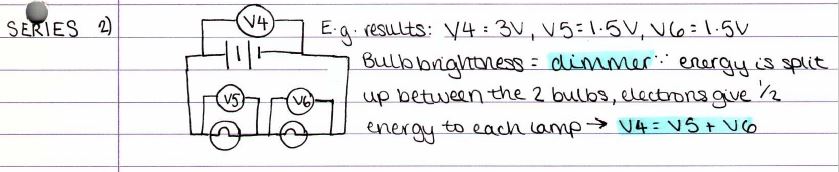 SERIES 2)
V4
V5
V6
E.g. results: V4 = 3V, V5 = 1.5V, V6 = 1.5V
Bulb brightness = dimmer ∵ energy is split
up between the 2 bulbs, electrons give 1/2
energy to each lamp → V4 = V5 + V6